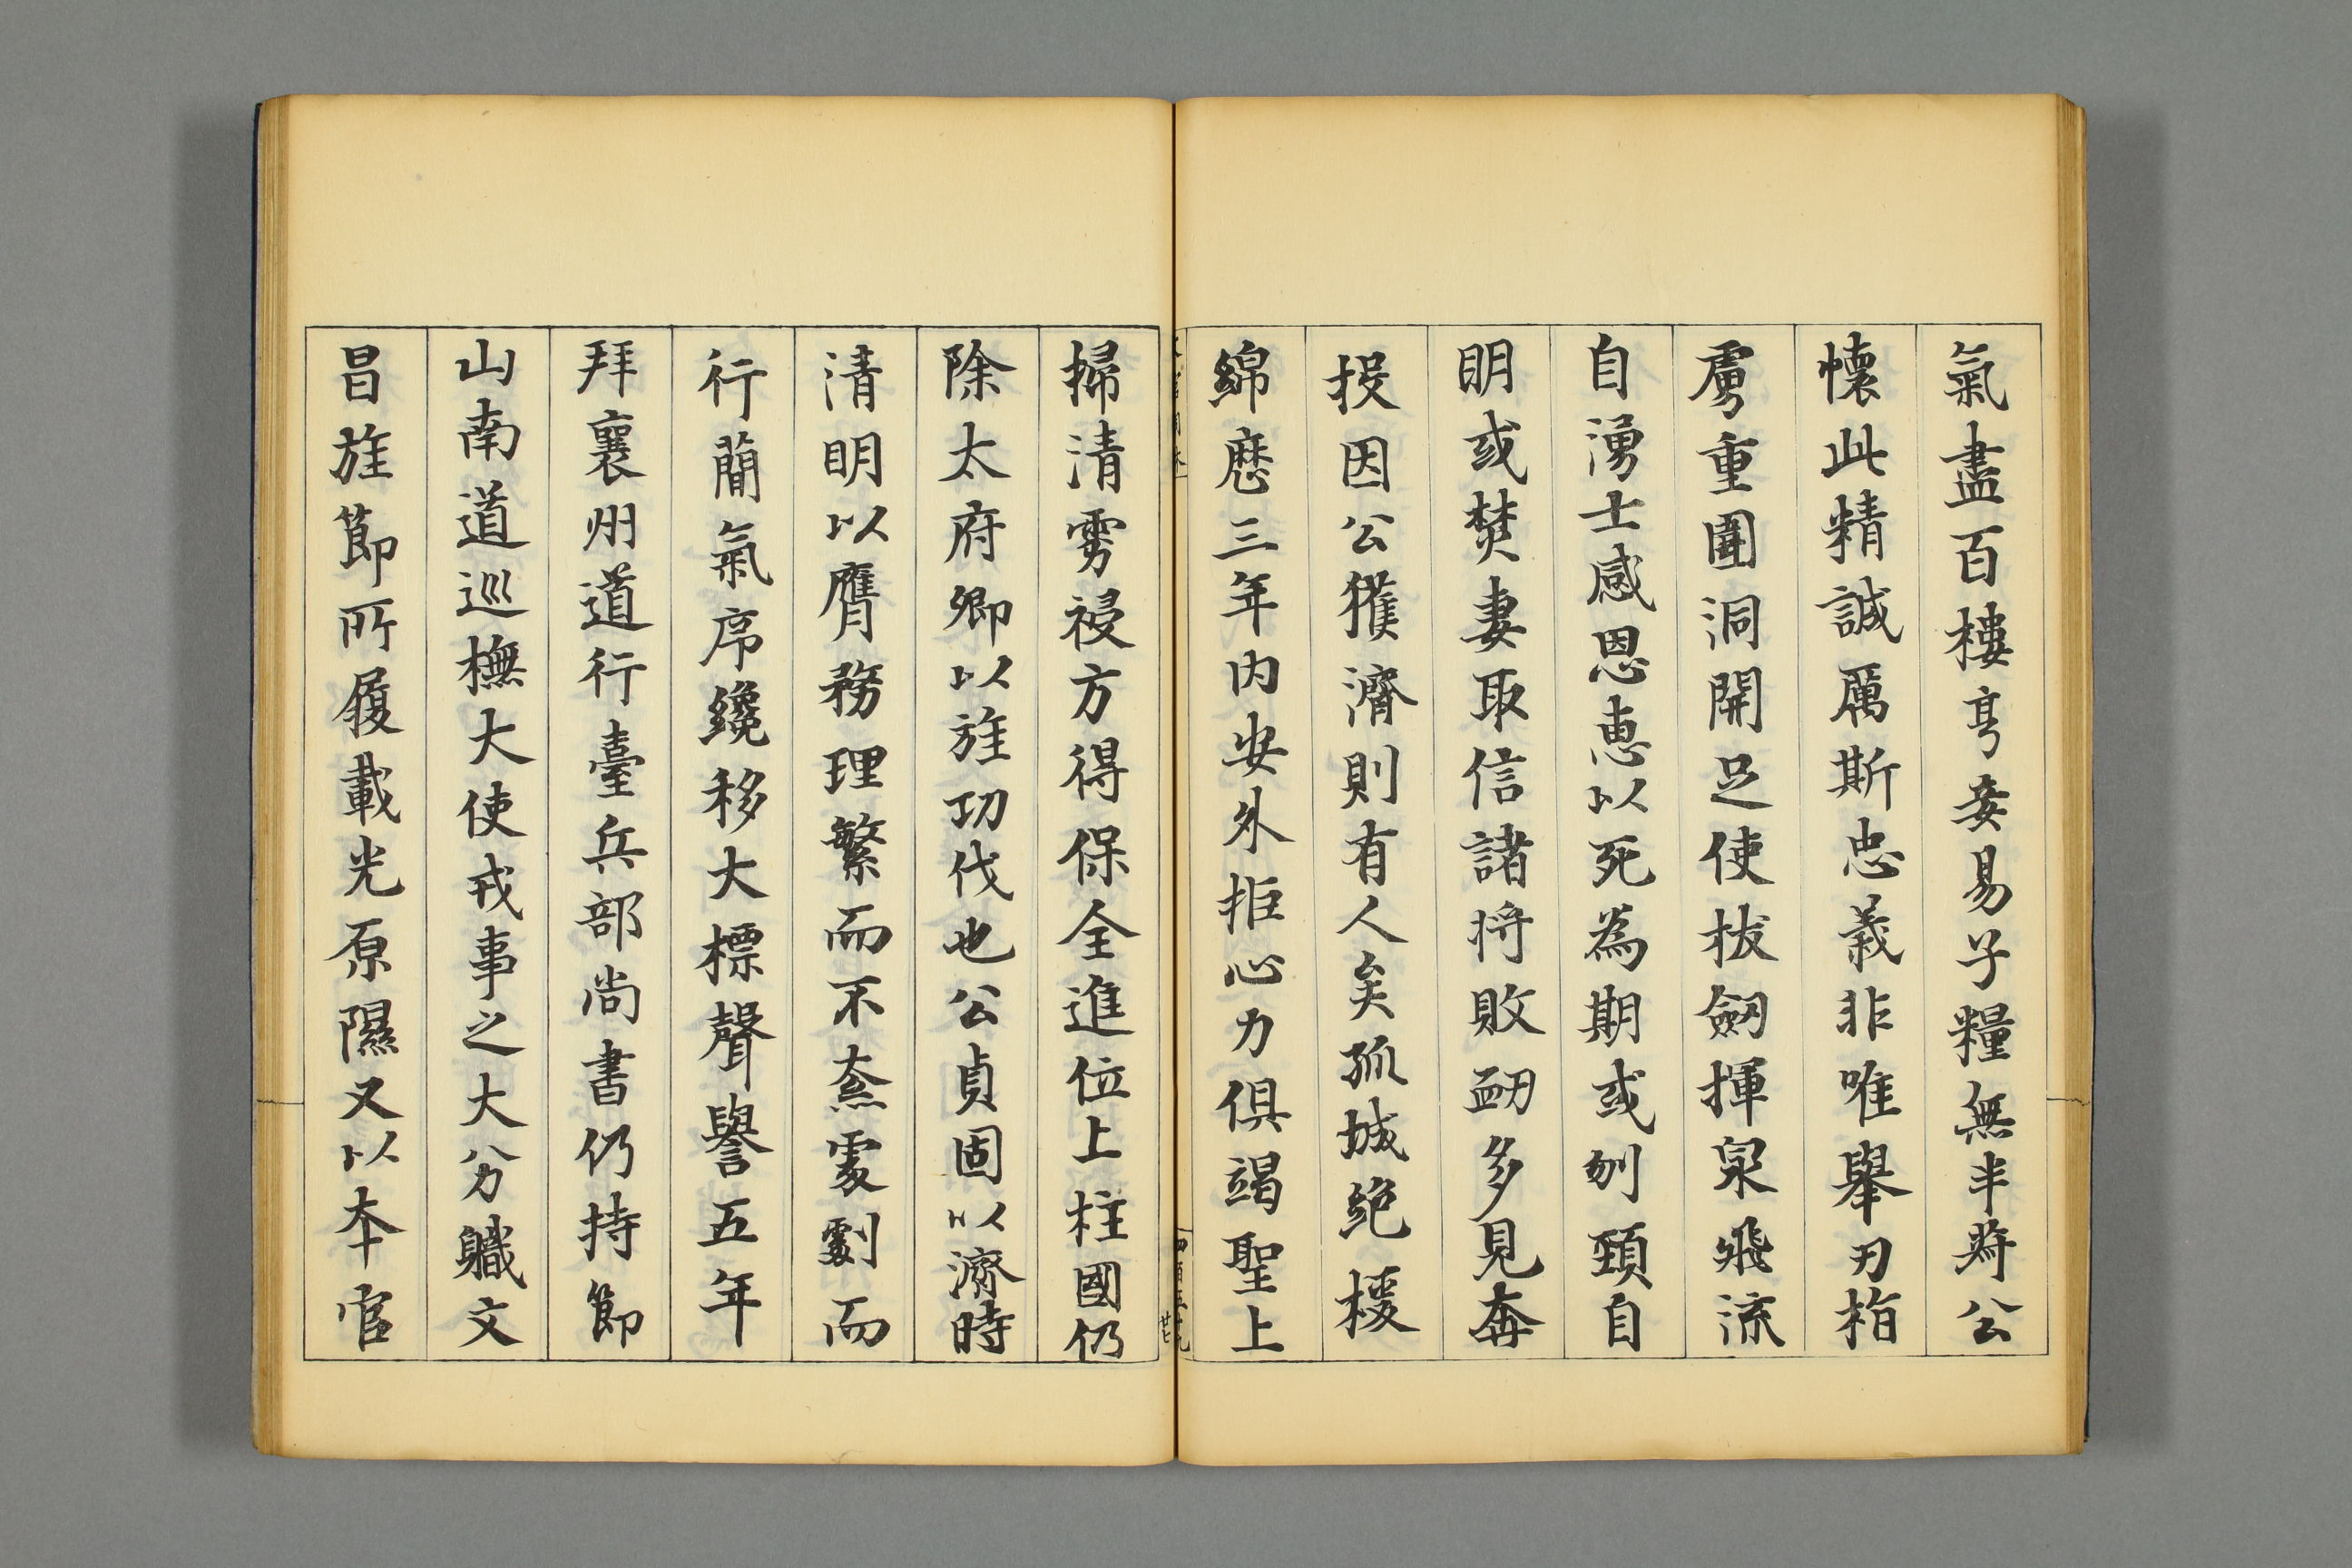 氣盡百樓亨妾易子糧無半菽公
懷此精誠厲斯忠義非唯舉刃指
虜重圍洞開足使拔劒揮泉飛流
自湧士感恩恵以死為期或刎頸自
明或焚妻取信諸将敗衂多見奔
投因公獲濟則有人矣孤城絶援
綿歷三年内安外拒心力俱竭聖上
掃清雰祲方得保全進位上柱國仍
除太府卿以旌功伐也公貞固以濟時
清明以膺務理繁而不紊處劇而
行蕳氣序纔移大標聲譽五年
拜襄州道行臺兵部尚書仍持節
山南道巡撫大使戎事之大分職文
昌旌節所履載光原隰又以本官